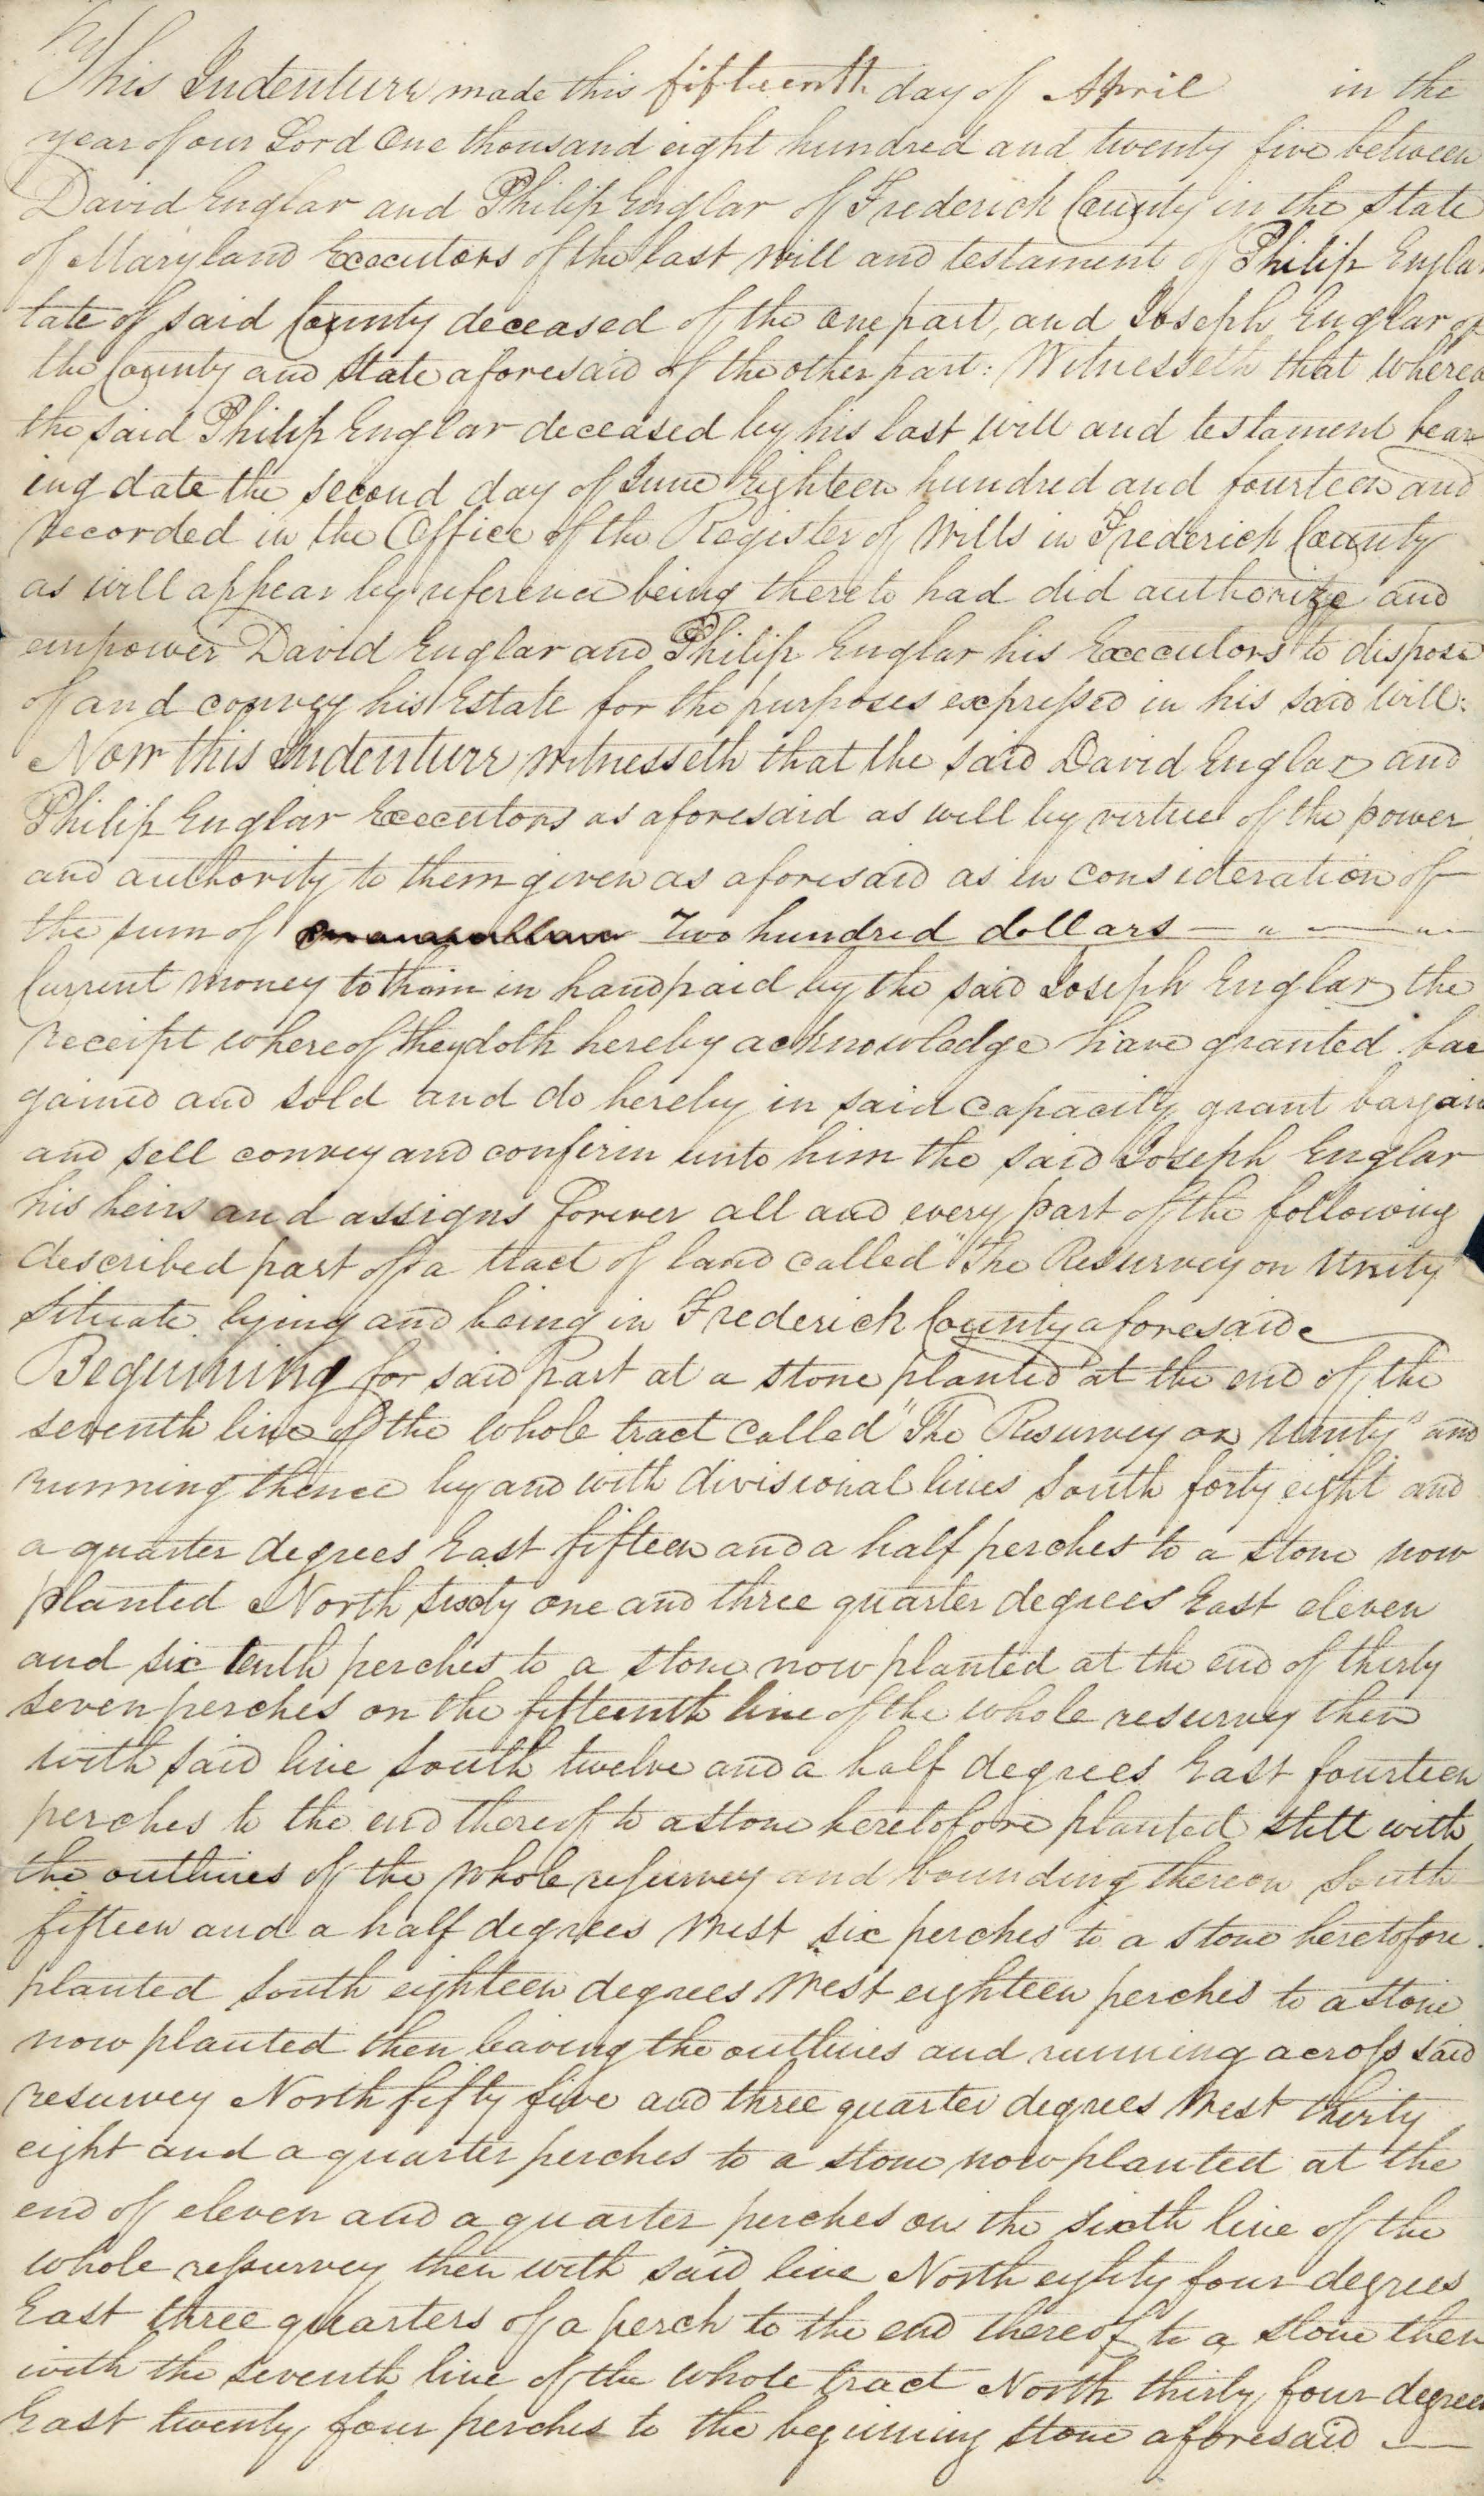 This Indenture made this fifteenth day of April in the
year of our Lord One thousand eight hundred and twenty five between
David Englar and Philip Englar of Frederick County in the State
of Maryland Executors of the last will and testament of Philip Englar
late of said County deceased of the one part, and Joseph Englar of
the County and State aforesaid of the other part: Witnesseth that whereas
the said Philip Englar deceased by his last will and testament bear
ing date the second day of June Eighteen hundred and fourteen and
recorded in the Office of the Register of Wills in Frederick County
as will appear by reference being thereto had did authorize and
empower David Englar and Philip Englar his Executors to dispose
of and convey his Estate for the purposes expressed in his said will:
Now this Indenture witnesseth that the said David Englar and
Philip Englar Executors as aforesaid as well by virtue of the power
and authority to them given as aforesaid as in consideration of
the sum of Two hundred dollars — " — " —
Current money to them in hand paid by the said Joseph Englar the
receipt whereof they doth hereby acknowledge have granted bar
gained and sold and do hereby in said capacity grant bargain
and sell convey and confirm unto him the said Joseph Englar
his heirs and assigns forever all and every part of the following
described part of a tract of land called "The Resurvey on Unity"
situate lying and being in Frederick County aforesaid
Beginning for said part at a stone planted at the end of the
seventh line of the whole tract called "The Resurvey on Unity" and
running thence by and with divisional lines South forty eight and
a quarter degrees East fifteen and a half perches to a stone now
planted North sixty one and three quarter degrees East eleven
and six tenth perches to a stone now planted at the end of thirty
seven perches on the fifteenth line of the whole resurvey then
with said line South twelve and a half degrees East fourteen
perches to the end thereof to a stone heretofore planted still with
the outlines of the whole resurvey and bounding thereon South
fifteen and a half degrees West six perches to a stone heretofore
planted South eighteen degrees West eighteen perches to a stone
now planted then leaving the outlines and running across said
resurvey North fifty five and three quarter degrees West thirty
eight and a quarter perches to a stone now planted at the
end of eleven and a quarter perches on the sixth line of the
whole resurvey then with said line North eighty four degrees
East three quarters of a perch to the end thereof to a stone then
with the seventh line of the whole tract North thirty four degrees
East twenty four perches to the beginning stone aforesaid —